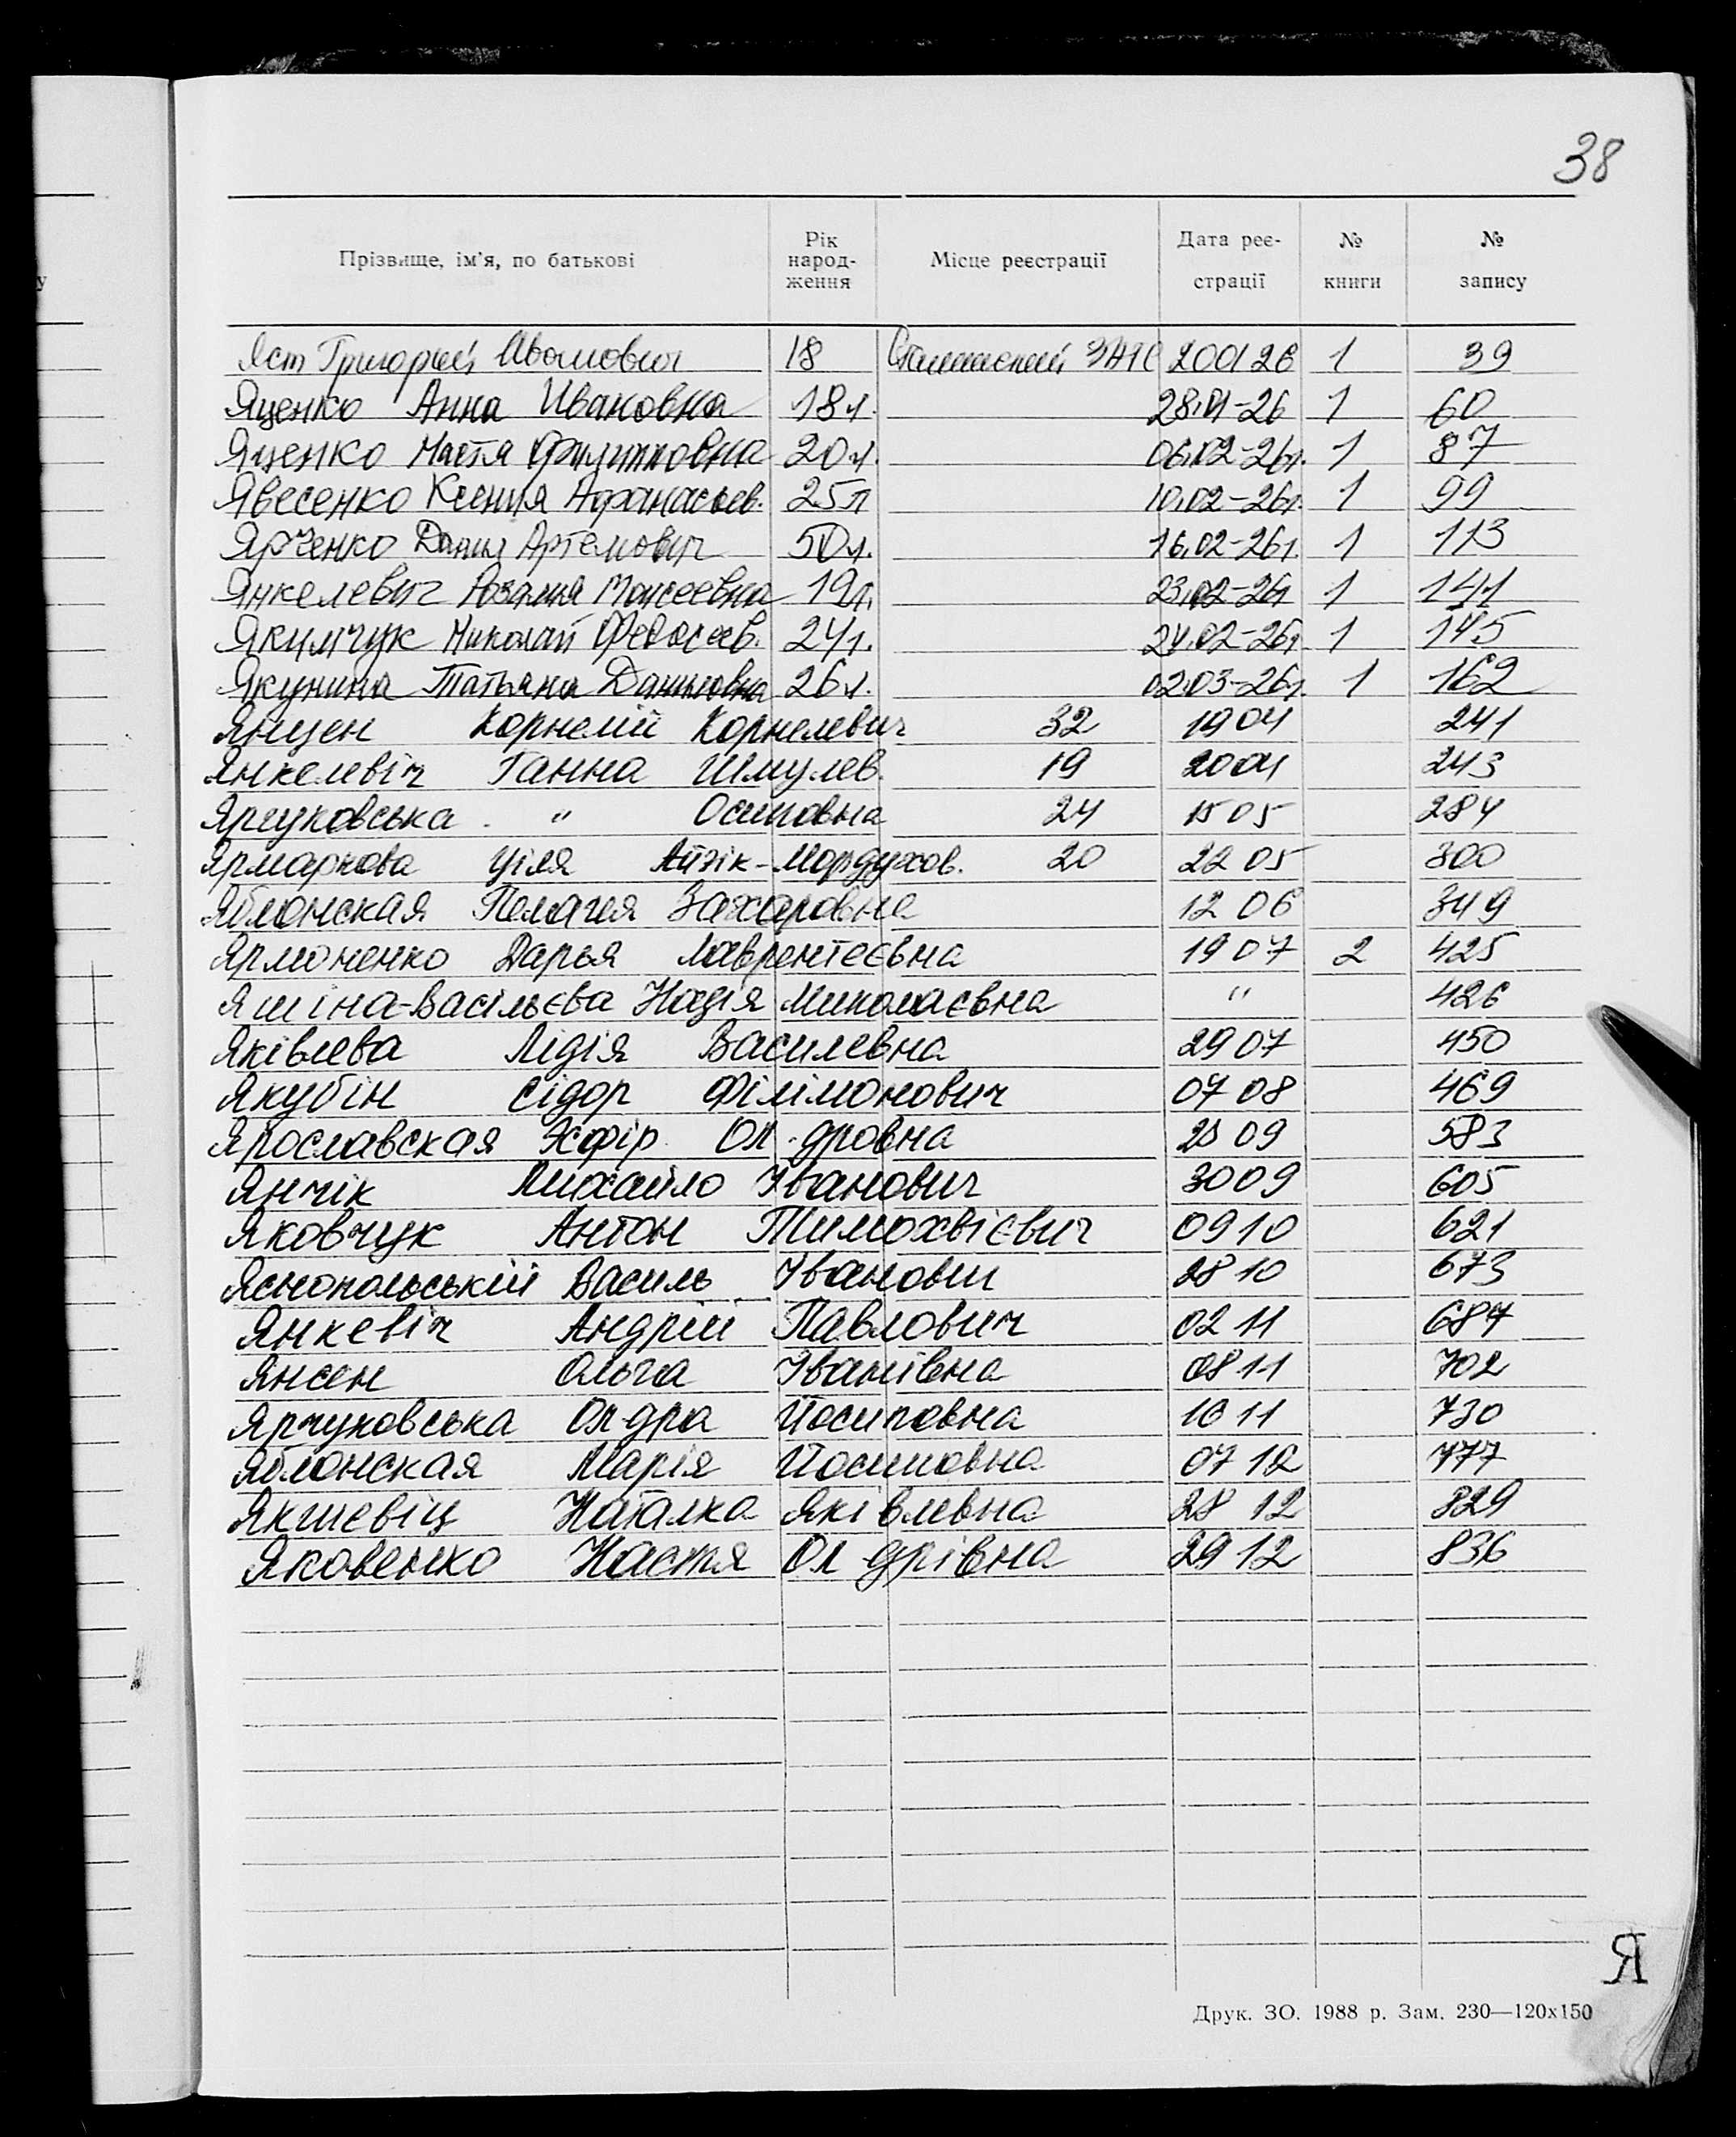 38
Прізвище, ім'я, по батькові Рік народ- ження Місце реєстрації Дата реє- страції № книги № запису
Яст Григорий Иванович 18 ЗАГС 2001 26 1 39
Яценко Анна Ивановна 18 л. 28.01-26 1 60
Яценко Настя Филипповна 20 л. 06.02-26г. 1 87
Явесенко Ксения Афанасьев. 25 л 10.02-26г. 1 99
Ярченко Данил Артемович 50 л. 16.02-26г. 1 113
Янкелевич Розалия Моисеевна 19 л. 23.02-26г 1 141
Якимчук Николай Федосеев. 24 л. 24.02-26г 1 145
Якунина Татьяна Даниловна 26 л. 02.03-26г. 1 162
Янцен Корнелій Корнелевич 32 1904 241
Янкелевіч Ганна Шмулев. 19 2004 243
Ярчуковська " Осиповна 24 1505 284
Ярмаркова Ціля Айзік-Мордухов. 20 22 05 300
Яблонская Пелагея Захаровна 12 06 349
Ярмоненко Дарья Лаврентеєвна 19 07 2 425
Яшіна-Васільєва Надія Миколаєвна " 426
Яківлева Лідія Василевна 29 07 450
Якубін Сідор Філімонович 07 08 469
Ярославская Эсфір Ол-дровна 09 583
Янчік Михайло Іванович 3009 605
Яковчук Антон Тимохвієвич 0910 621
Яснопольській Василь Іванович 28 10 673
Янкевіч Андрій Павлович 02 11 687
Янсен Ольга Іванівна 08 11 702
Ярчуковська Ол-дра Йосиповна 16 11 730
Яблонская Марія Йосиповна 07 12 777
Якшевіц Наталка Яківлевна 28 12 829
Яковенко Настя Ол дрівна 29 12 836
Я
Друк. ЗО. 1988 р. Зам. 230—120х150